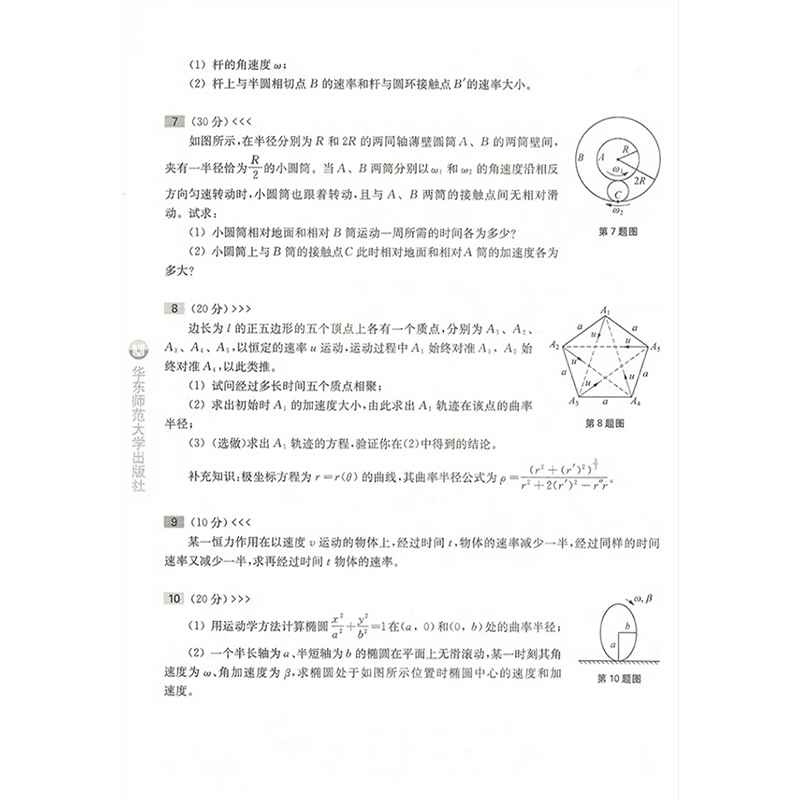 (1) 杆的角速度 ω;
(2) 杆上与半圆相切点 B 的速率和杆与圆环接触点 B′的速率大小。
7 (30 分) <<<
如图所示,在半径分别为 R 和 2R 的两同轴薄壁圆筒 A、B 的两筒壁间,
夹有一半径恰为 R/2 的小圆筒。当 A、B 两筒分别以 ω₁ 和 ω₂ 的角速度沿相反
方向匀速转动时,小圆筒也跟着转动,且与 A、B 两筒的接触点间无相对滑
动。试求:
(1) 小圆筒相对地面和相对 B 筒运动一周所需的时间各为多少?
(2) 小圆筒上与 B 筒的接触点C 此时相对地面和相对A 筒的加速度各为
多大?
B A R ω₁ 2R C ω₂
第 7 题图
8 (20 分) >>>
边长为 l 的正五边形的五个顶点上各有一个质点,分别为 A₁、A₂、
A₃、A₄、A₅,以恒定的速率 u 运动,运动过程中 A₁ 始终对准 A₃, A₂ 始
终对准 A₄,以此类推。
(1) 试问经过多长时间五个质点相聚;
(2) 求出初始时 A₁ 的加速度大小,由此求出 A₁ 轨迹在该点的曲率
半径;
(3) (选做)求出 A₁ 轨迹的方程,验证你在(2)中得到的结论。
补充知识:极坐标方程为 r=r(θ) 的曲线,其曲率半径公式为 ρ=(r²+(r′)²)^(3/2)/(r²+2(r′)²-r″r)。
A₁ a a A₂ u u A₅ a u a u u A₃ a A₄
第 8 题图
9 (10 分) <<<
某一恒力作用在以速度 v 运动的物体上,经过时间 t,物体的速率减少一半,经过同样的时间
速率又减少一半,求再经过时间 t 物体的速率。
10 (20 分) >>>
(1) 用运动学方法计算椭圆 x²/a²+y²/b²=1在(a, 0)和(0, b)处的曲率半径;
(2) 一个半长轴为 a、半短轴为 b 的椭圆在平面上无滑滚动,某一时刻其角
速度为 ω、角加速度为 β,求椭圆处于如图所示位置时椭圆中心的速度和加
速度。
ω, β b a
第 10 题图
华东师范大学出版社